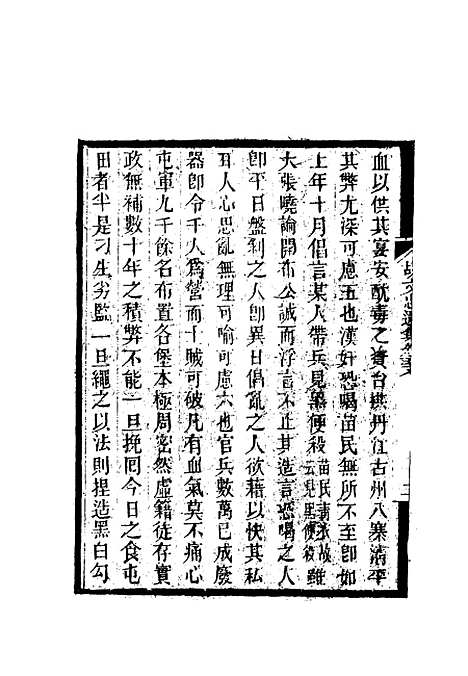 血以供其宴安酖毒之資台拱丹江古州八寨清平
其弊尤深可慮五也漢奸恐喝苗民無所不至卽如
上年十月倡言某人帶兵見黑便殺苗民靑衣故云見黑便殺雖
大張曉諭開布公誠而浮言不止其造言恐喝之人
卽平日盤剝之人卽異日倡亂之人欲藉以快其私
且人心思亂無理可喻可慮六也官兵數萬已成廢
器卽令千人爲營而十賊可破凡有血氣莫不痛心
屯軍九千餘名布置各堡本極周密然虛籍徒存實
政無補數十年之積弊不能一旦挽囘今日之食屯
田者半是刁生劣監一旦繩之以法則捏造黑白勾